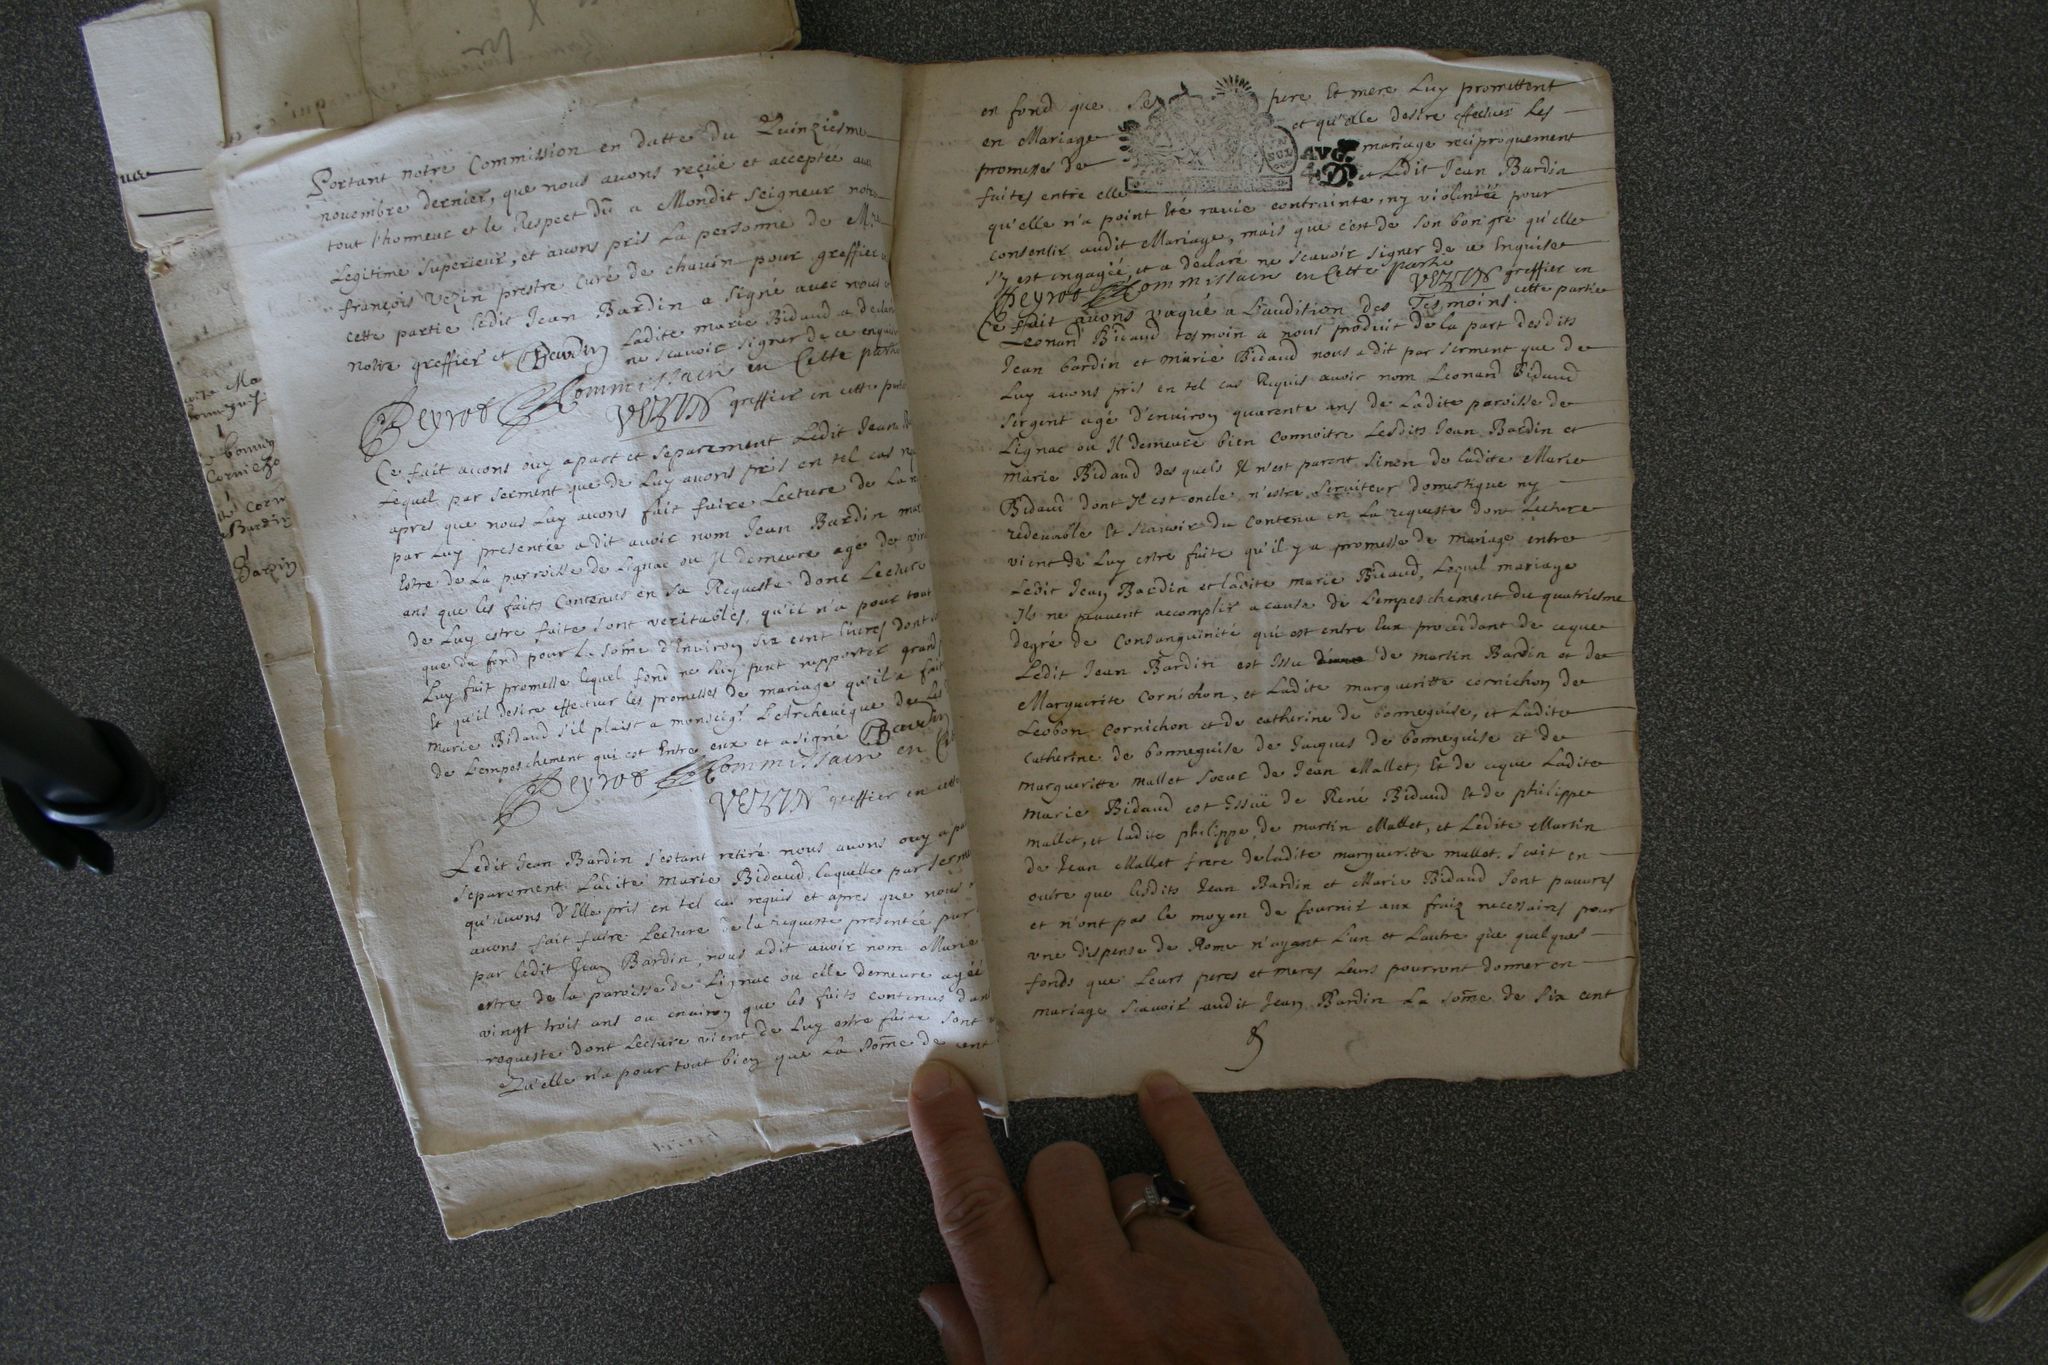 Portant notre Commission en datte du Quinziesme
novembre dernier, que nous avons reçüe et acceptée avec
tout l'honneur et le Respect dû a Mondit Seigneur notre
Legitime superieur, et avons pris la personne de
françois Vezin prestre Curé de chavin pour greffier
cette partie ledit Jean Bardin a signé avec nous
notre greffier et Bardin Ladite marie Bidaud a declaré
ne scavoir signer de ce enquise
Peyrot Commissaire en Cette partie
VEZIN greffier en cette partie
Ce fait avons ouy apart et separement Ledit Jean
Lequel par serment que de Luy avons pris en tel cas
apres que nous Luy avons fait faire Lecture de la
par Luy presentée a dit avoir nom Jean Bardin
Estre de La parroisse de Lignac ou Il demeure agé de vin
ans que les faits Contenus en sa Requeste dont Lecture
de Luy estre faite sont veritables, qu'il n'a pour tout
que du fond pour la sõme d'Environ six cent livres dont
Luy fait promesse lequel fond ne luy peut rapporter grand
Et qu'il desire effectuer les promesses de mariage qu'il a fait
Marie Bidaud s'il plaist a monseigr L'Archevêque de Les
de L'empeschement qui est Entre eux et a signé Bardin
Peyrot Commissaire en
VEZIN greffier en cette
Ledit Jean Bardin s'estant retiré nous avons ouy a
separement Ladite Marie Bidaud, laquelle par serment
qu'avons d'Elle pris en tel cas requis et apres que nous
avons fait faire Lecture de la Requeste presentée par
par ledit Jean Bardin, nous a dit avoir nom Marie
estre de la paroisse de Lignac ou elle demeure agée
vingt trois ans ou environ que les faits contenus dans
requeste dont Lecture vient de Luy estre faite sont
Qu'elle n'a pour tout bien que la sõme de cent
en fond que Se pere Et mere Luy promettent
en Mariage et qu'elle desire effectuer les
promesses de mariage reciproquement
faites entre elle et Ledit Jean Bardin
AVG.
qu'elle n'a point Eté ravie contrainte, ny violentée pour
consentir audit Mariage, mais que c'est de son bon gré qu'elle
s'y est engagée, et a declaré ne scavoir signer de ce Enquise
Peyrot Commissaire en Cette partie
VEZIN greffier en
cette partie
Ce fait avons vaqué a L'audition des Tesmoins.
Leonard Bidaud tesmoin a nous produit de la part desdits
Jean bardin et marie Bidaud nous a dit par serment que de
Luy avons pris en tel cas Requis avoir nom Leonard Bidaud
Sergent agé d'environ quarente ans de Ladite paroisse de
Lignac ou Il demeure bien Connoitre Lesdits Jean Bardin et
Marie Bidaud des quels Il n'est parent Sinon de ladite Marie
Bidaud dont Il est oncle, n'estre serviteur domestique ny
redevable Et scavoir du Contenu en La requeste dont Lecture
vient de Luy estre faite qu'il y a promesse de mariage entre
Ledit Jean Bardin et ladite marie Bidaud, Lequel mariage
Ils ne peuvent accomplir a cause de L'empeschement du quatriesme
degré de Consanguinité qui est entre Eux procedant de ceque
Ledit Jean Bardin est Issu de martin Bardin et de
Marguerite Cornichon, et Ladite margueritte cornichon de
Leobon Cornichon et de catherine de bonneguise, et Ladite
Catherine de bonneguise de Jacques de bonneguise et de
margueritte mallet soeur de Jean Mallet, Et de ceque Ladite
Marie Bidaud est Issuë de René Bidaud Et de philippe
mallet, et ladite philippe, de martin Mallet, et Ledite Martin
de Jean Mallet frere de ladite margueritte mallet. Scait en
outre que lesdits Jean Bardin et Marie Bidaud sont pauvres
et n'ont pas le moyen de fournir aux fraiz necessaires pour
une dispense de Rome n'ayant L'un et L'autre que quelques
fonds que Leurs peres et meres Leurs pourront donner en
mariage Scavoir audit Jean Bardin La sõme de six cent